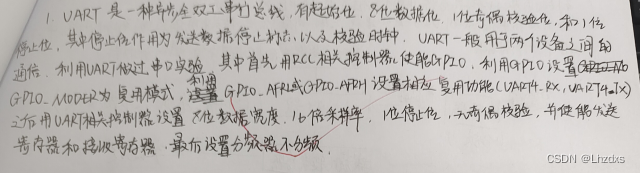 1. UART 是一种异步全双工串行总线，有起始位，8位数据位，1位奇偶校验位，和1位
停止位，其中停止位作用为发送数据停止标志，以及校验时钟。UART一般用于两个设备之间的
通信。利用UART做过串口实验，其中首先用RCC相关控制器使能GPIO，利用GPIO设置
GPIO_MODER为复用模式，利用GPIO_AFRL或GPIO_AFRH设置相应复用功能(UART4_RX, UART4_TX)
之后用UART相关控制器设置8位数据宽度，16倍采样率，1位停止位，无奇偶校验，并使能发送
寄存器和接收寄存器，最后设置分频器不分频.
CSDN @Lhzdxs